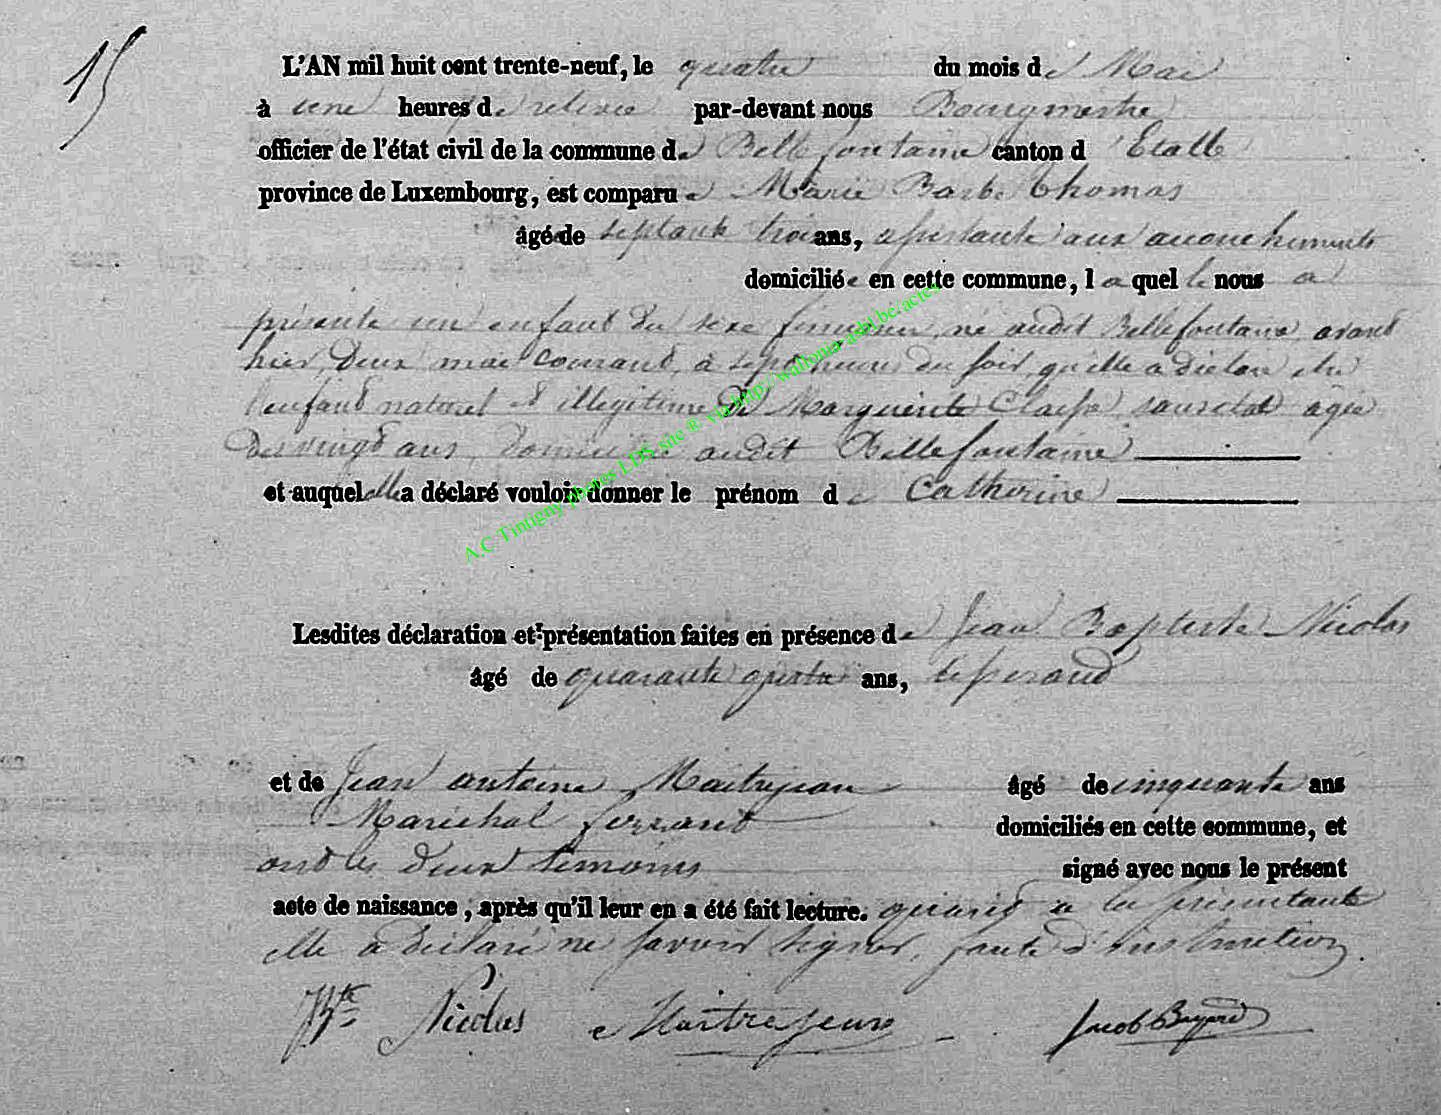 15
L'AN mil huit cent trente-neuf, le quatre du mois de Mai
à une heures de relevée par-devant nous Bourgmestre
officier de l'état civil de la commune de Bellefontaine canton d'Etalle
province de Luxembourg, est comparue Marie Barbe Thomas
âgée de septante trois ans, assistante aux accouchements
domiciliée en cette commune, laquelle nous a
présenté un enfant du sexe féminin, né audit Bellefontaine avant
hier, deux mai courant, à sept heures du soir, qu'elle a déclaré être
l'enfant naturel et illégitime de Marguerite sans état âgée
de vingt ans, domiciliée audit Bellefontaine
et auquel elle a déclaré vouloir donner le prénom de Catherine
Lesdites déclaration et présentation faites en présence de Jean Baptiste Nicolas
âgé de quarante quatre ans, tisserand
et de Jean antoine Maitrejean âgé de cinquante ans
Maréchal ferrant domiciliés en cette commune, et
ont les deux témoins signé avec nous le présent
acte de naissance, après qu'il leur en a été fait lecture. quand à la présentante
elle a déclaré ne savoir signer, faute d'instruction
JBte Nicolas Maitrejean Jacob
A.C Tintigny photos LDS site ® via http://wallonia-asbl.be/acres